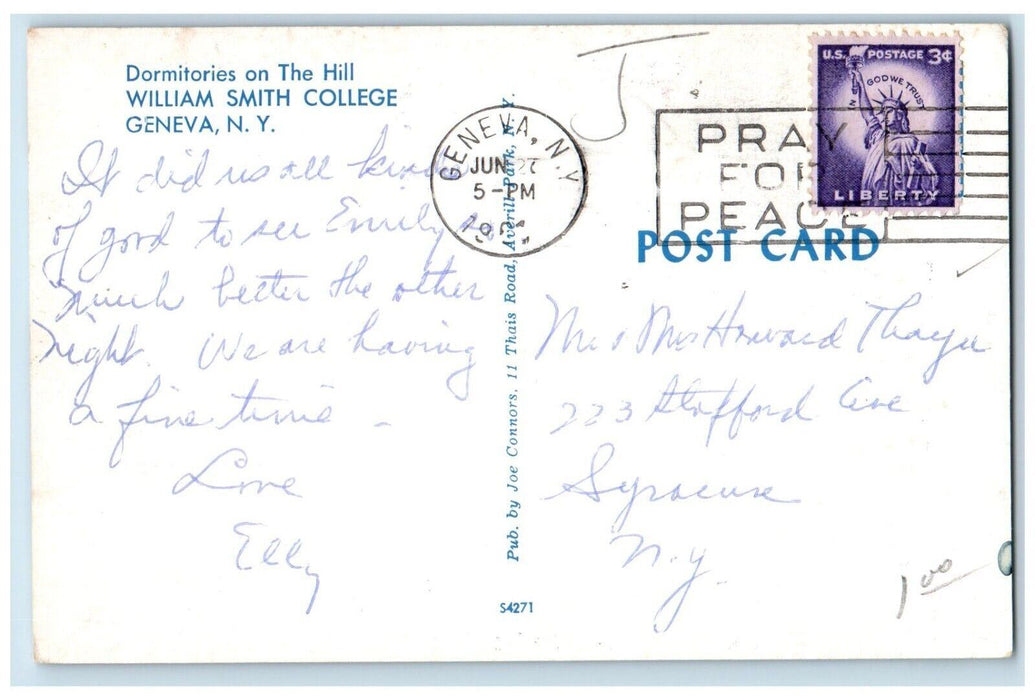 Dormitories on The Hill
WILLIAM SMITH COLLEGE
GENEVA, N. Y.
It did us all kind
of good to see Emily so
much better the other
night. We are having
a fine time -
Love
Elly
Pub. by Joe Connors, 11 Thais Road, Averill Park, N. Y.
S4271
J
GENEVA, N.Y.
JUN 27
5-PM
PRAY
FOR
PEACE
U.S. POSTAGE 3¢
IN GOD WE TRUST
LIBERTY
POST CARD
Mr & Mrs Howard Thayer
223 Stafford Ave
Syracuse
N.y.
1 00